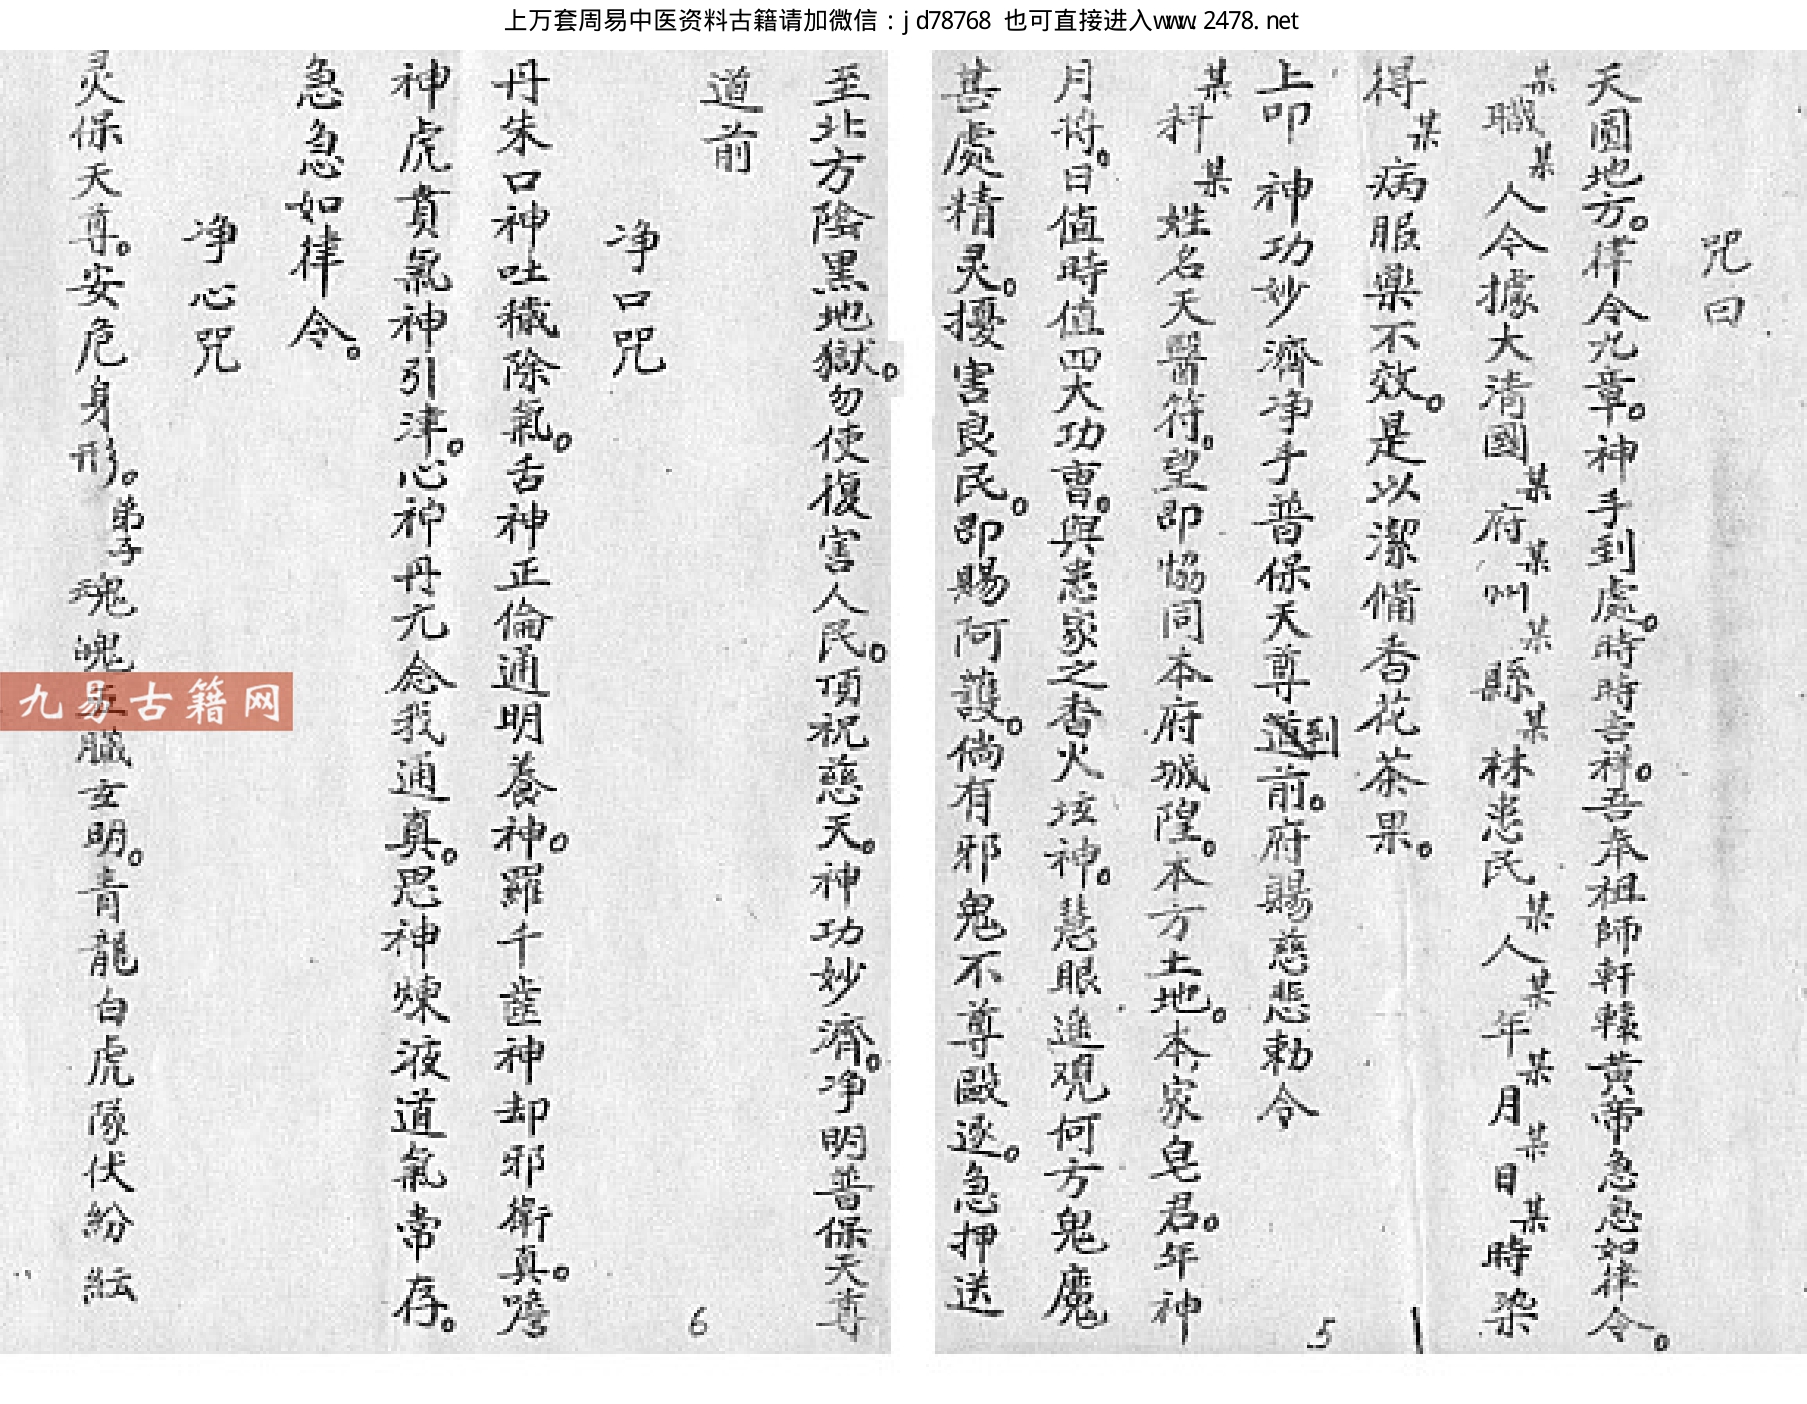 上万套周易中医资料古籍请加微信：jd78768 也可直接进入www.2478.net
咒曰
天圓地方。律令九章。神手到處。時時吉祥。吾奉祖師軒轅黃帝急急如律令。
某職某人今據大清國某府某州某縣某林患民某人某年某月某日某時染
得某病服藥不效。是以潔備香花茶果。
上叩神功妙濟净手普保天尊道到前。府賜慈悲勅令
某科某姓名天醫符。望即恊同本府城隍。本方土地。本家皂君。年神
月将。日值時值四大功曹。與患家之香火垓神。慧眼進观何方鬼魔
甚處精灵。擾害良民。即賜阿護。倘有邪鬼不尊毆逐。急押送
5
至北方陰黑地獄。勿使復害人民。頂祝慈天。神功妙濟。净明普保天尊
道前
净口咒
丹朱口神吐穢除氣。舌神正倫通明養神。羅千齒神却邪衛真。喉
神虎賁氣神引津。心神丹元念我通真。思神煉液道氣常存。
急急如律令。
净心咒
灵保天尊。安危身形。弟子魂魄五臟玄明。青龍白虎隊伏紛紜
6
九易古籍网